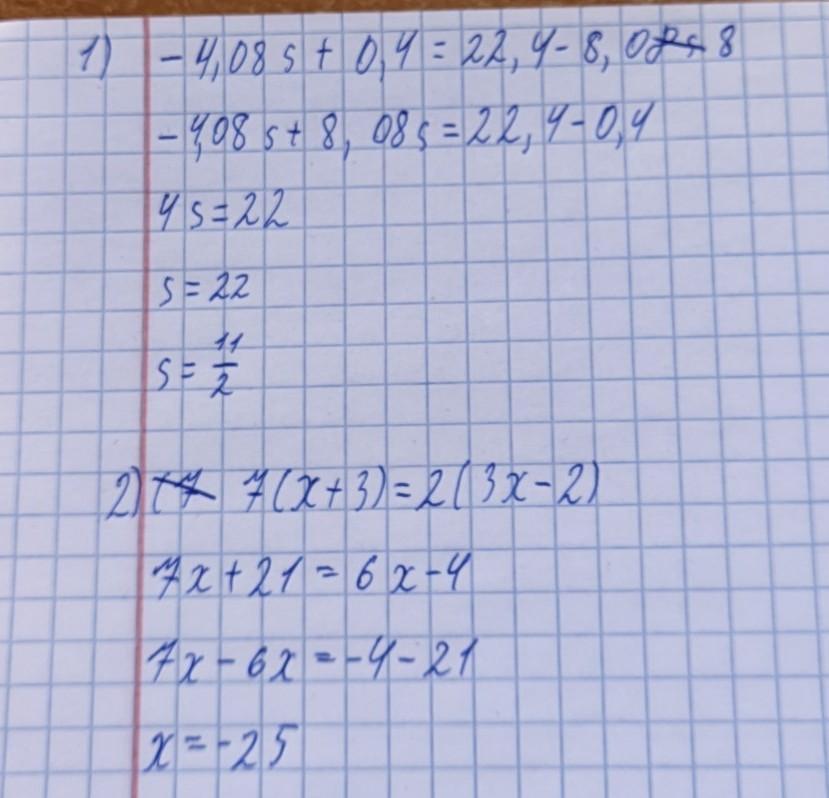 1) -4,08 s + 0,4 = 22,4 - 8,08s 8
-4,08 s + 8,08s = 22,4 - 0,4
4 s = 22
s = 22
s = 11/2
2) (7 7(x+3) = 2(3x-2)
7x + 21 = 6x - 4
7x - 6x = -4 - 21
x = -25